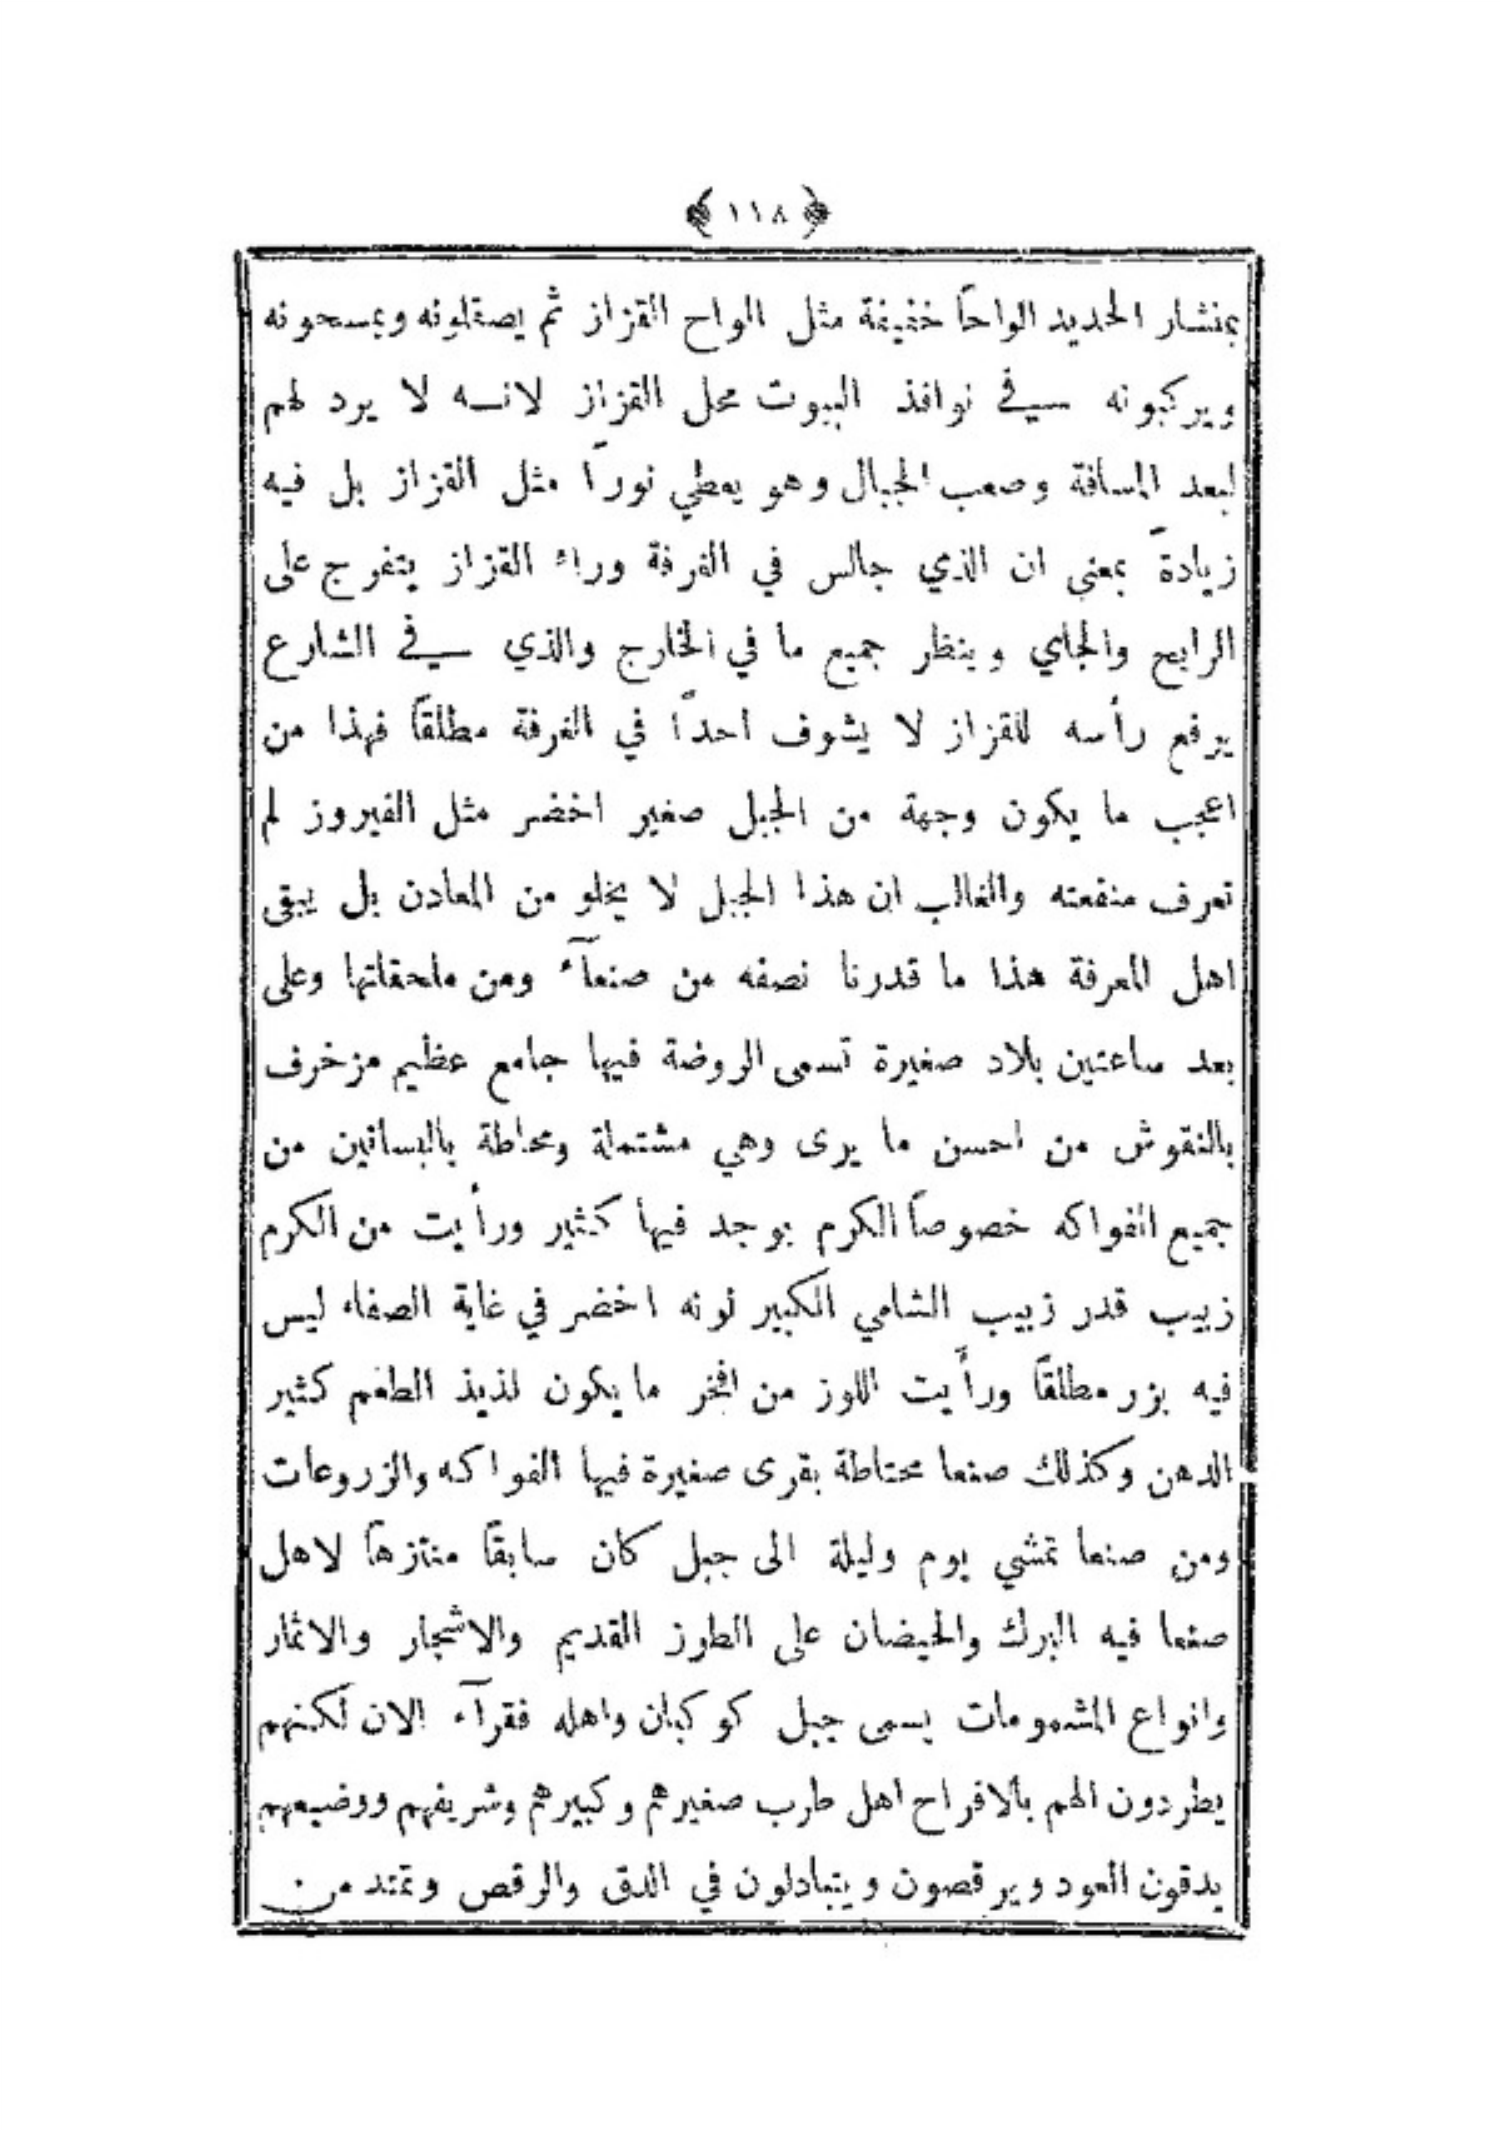 ﴿ ١١٨ ﴾
بمنشار الحديد الواحاً خفيفة مثل الواح القزاز ثم يصقلونه ويمسحونه
ويركبونه في نوافذ البيوت محل القزاز لانه لا يرد لهم
لبعد المسافة وصعب الجبال وهو يعطي نوراً مثل القزاز بل فيه
زيادة بمعنى ان الذي جالس في الغرفة وراء القزاز يتفرج على
الرايح والجاي وينظر جميع ما في الخارج والذي في الشارع
يرفع رأسه للقزاز لا يشوف احداً في الغرفة مطلقاً فهذا من
اعجب ما يكون وجهة من الجبل صغير اخضر مثل الفيروز لم
تعرف منفعته والغالب ان هذا الجبل لا يخلو من المعادن بل يبقى
اهل المعرفة هذا ما قدرنا نصفه من صنعآء ومن ملحقاتها وعلى
بعد ساعتين بلاد صغيرة تسمى الروضة فيها جامع عظيم مزخرف
بالنقوش من احسن ما يرى وهي مشتملة ومحاطة بالبساتين من
جميع الفواكه خصوصاً الكرم يوجد فيها كثير ورأيت من الكرم
زبيب قدر زبيب الشامي الكبير لونه اخضر في غاية الصفاء ليس
فيه بزر مطلقاً ورأيت اللوز من افخر ما يكون لذيذ الطعم كثير
الدهن وكذلك صنعا محتاطة بقرى صغيرة فيها الفواكه والزروعات
ومن صنعا تمشي يوم وليلة الى جبل كان سابقاً منتزهاً لاهل
صنعا فيه البرك والحيضان على الطرز القديم والاشجار والاثمار
وانواع المشمومات يسمى جبل كوكبان واهله فقرآء الان لكنهم
يطردون الهم بالافراح اهل طرب صغيرهم وكبيرهم وشريفهم ووضيعهم
يدقون العود ويرقصون ويتبادلون في الدق والرقص وتمتد من